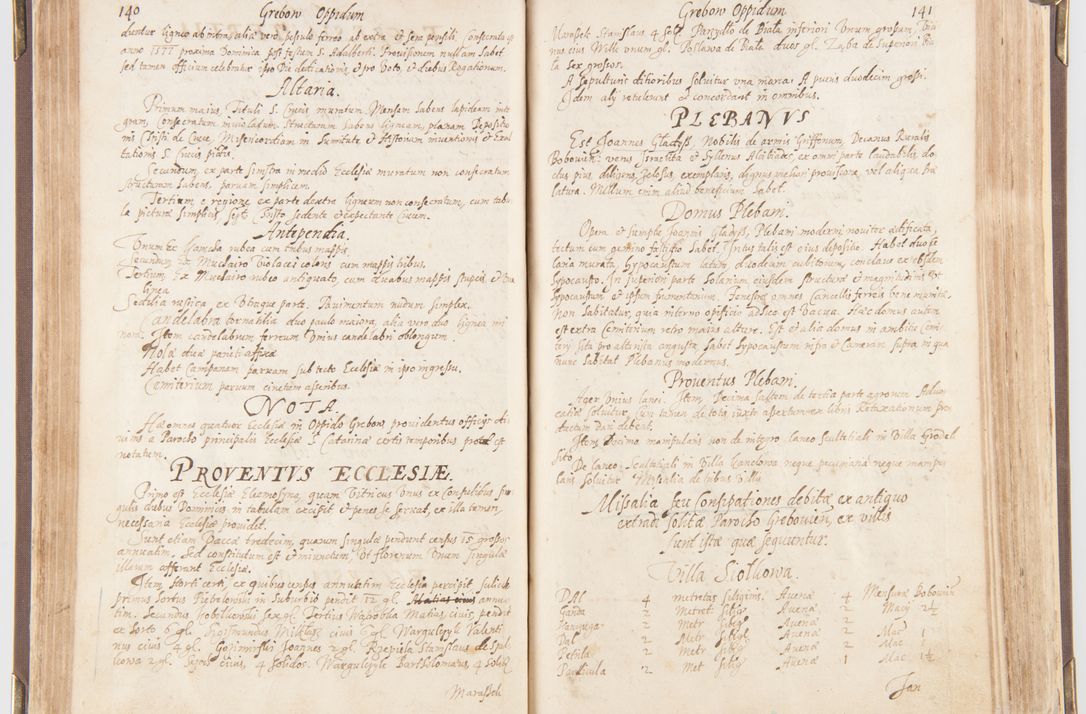 140 Grebow Oppidum
duntur ligneo ab intra, alia vero pessulo ferreo ab extra et sera pensili. Consecrata
anno 1577 proxima Dominica post festum S. Adalberti. Provisionem nullam habet
sed tamen officium celebratur ipso die dedicationis, et pro Voto, et diebus Rogationum.
Altaria.
Primum maius, Tituli S. Crucis muratum, Mensam habens lapideam inte
gram, Consecratum inviolatum structuram habens ligneam, planam Depositio
nis Christi de Cruce, Misericordiam in sumitate et Historiam inventionis et Exal
tationis S. Crucis
Secundum, ex parte sinistra in medio Ecclesiæ muratum non consecratum
structuram habens, parvam simplicem.
Tertium e regione ex parte dextra ligneum non consecratum, cum tabu
la pictura simplicis Christo sedente et expectante Crucem.
Antependia.
Unum ex rubea cum tribus mappis.
Secundum ex Muclairo Violacei coloris cum mappis tribus.
Tertium, ex Muclairo rubeo antiquato, cum duabus mappis stupeis, et una
linea
Sedilia rustica, ex Utraque parte. Pavimentum nudum simplex.
Candelabra tornatilia duo paulo maiora, alia vero duo lignea mi
nora. Item candelabrum ferreum Unius candelabri oblongum.
Nolæ duæ parieti affixæ
Habet Campanam parvam sub tecto Ecclesiæ in ipso ingressu.
Cemiterium parvum cinctum asseribus.
NOTA.
Hæ omnes quatuor Ecclesiæ in Oppido Grebow providentur officijs di
vinis a Parocho principalis Ecclesiæ S. Catarinæ certis temporibus est
notatum.
PROVENTVS ECCLESIÆ.
Primo est Ecclesiæ Eleemosyna, quam Vitricus Unus ex Consulibus sin
gulis diebus Dominicis in tabulam excipit et penes se servat, ex illa tamen,
necessaria Ecclesiæ providet.
Sunt etiam Vaccæ tredecim, quarum singulæ pendunt census 15 grossos
annuatim. Sed constitutum est et iniunctum, Ut florenum Unum singulæ
illarum afferant Ecclesiæ.
Item Horti certi, ex quibus census annuatim Ecclesia percipit, scilicet
primus hortus in Suburbio pendit 12 gl. annua
tim. Secundus sex gl. Tertius Matias civis, pendit
ex horto 6 gl. Sigismundus Miklasz civis 6 gl. Valenti
nus civis 4 gl. Joannes 2 gl. Rzepiela Stanislaus de
2 gl. civis, 4 solidos. Bartholomæus, 4 solid
Marassek

Grebow Oppidum 141
Marassek Stanislaus 4 sold. de Biala inferiori Unum grossum,
nus eius Ville unum gl. de Biala duos gl. Zaba de Superiori Bia
la Sex grossos.
A sepulturis ditioribus solvitur una marca: A pueris duodecim grossi.
Idem alij retulerunt et concordant in omnibus.
PLEBANVS
Est Joannes Gladysz, Nobilis de armis Griffonum, Decanus Ruralis
Bobowien: verus Israelita et Syllenus Alcibiades, ex omni parte laudabilis, do
ctus pius diligens, zelosus, exemplaris, dignus meliori provisione, vel aliqua præ
latura. Nullum enim aliud beneficium habet.
Domus Plebani.
Opera et sumptu Joannis Gladysz, Plebani moderni noviter ædificata,
tectum cum gemino fastigio habet. Intus talis est eius depositio. Habet duo
laria murata, hypocaustum latum, duodecim cubitorum, conclave ex eodem
hypocausto. In superiori parte solarium eiusdem structuræ et magnitudinis et
hypocaustum et ipsum frumentorum. Fenestræ omnes cancellis ferreis bene munitæ,
Non habitatur, quia interno opificio adhuc est Vacua. Hæc domus autem
est extra Cemiterium retro maius altare. Est et alia domus in ambitu Cemi
terij sita pro altarista angusta habet hypocaustum infra et Cameram supra, in qua
nunc habitat Plebanus modernus.
Proventus Plebani.
Ager Unius lanei. Item Decima saltem de tertia parte agrorum Advo
catiæ solvitur, cum tamen de tota iuxta assertionem libri Retaxationum per
dictum dari debeat.
Item Decima manipularis non de integro laneo Scultetiali in Villa Grodek
sito
De laneo Scultetiali in Villa neque pecuniaria neque manipu
laris solvitur Missalia de tribus Villis
Missalia seu Consipationes debitæ ex antiquo
extradi solitæ Parocho Grebowien, ex villis
sunt istæ quæ sequuntur.
Villa Siolkowa.
Pal 4 metretas siliginis. Avenæ 4 Mensuræ Bobowien
Ganda 2 Metret silig Avenæ 2 Macij 2½
2 Metr silig Avenæ 2 Mac 1
Pal 2 Metr silig Avenæ 2 Mac 1
Petrila 2 Metr silig Avenæ 2 Mac
Paullicula 2 Met silig Avenæ 1 Mac 1½
Jan